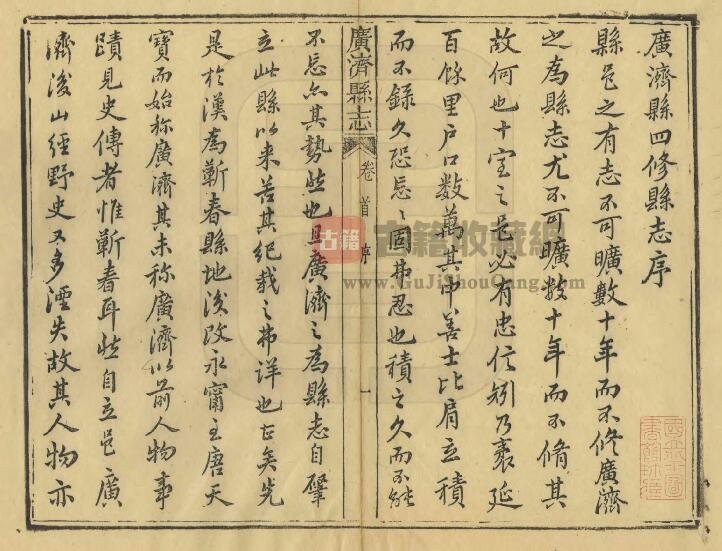 廣濟縣四修縣志序
縣邑之有志不可曠數十年而不修廣濟
之為縣志尤不可曠數十年而不脩其
故何也十室之邑必有忠信矧乃袤延
百餘里戶口數萬其中善士比肩立積
而不錄久恐忘忘固弗忍也積之久而不能
廣濟縣志
卷首
序
一
不忘亦其勢然也且廣濟之為縣志自肇
立此縣以来苦其紀載之弗詳也in矣先
是於漢為蘄春縣地後改永甯至唐天
寶而始称廣濟其未称廣濟以前人物事
蹟見史傳者惟蘄春耳然自立邑廣
濟後山經野史又多湮失故其人物亦
古籍
古籍收藏網
www.GuJiShouCang.com